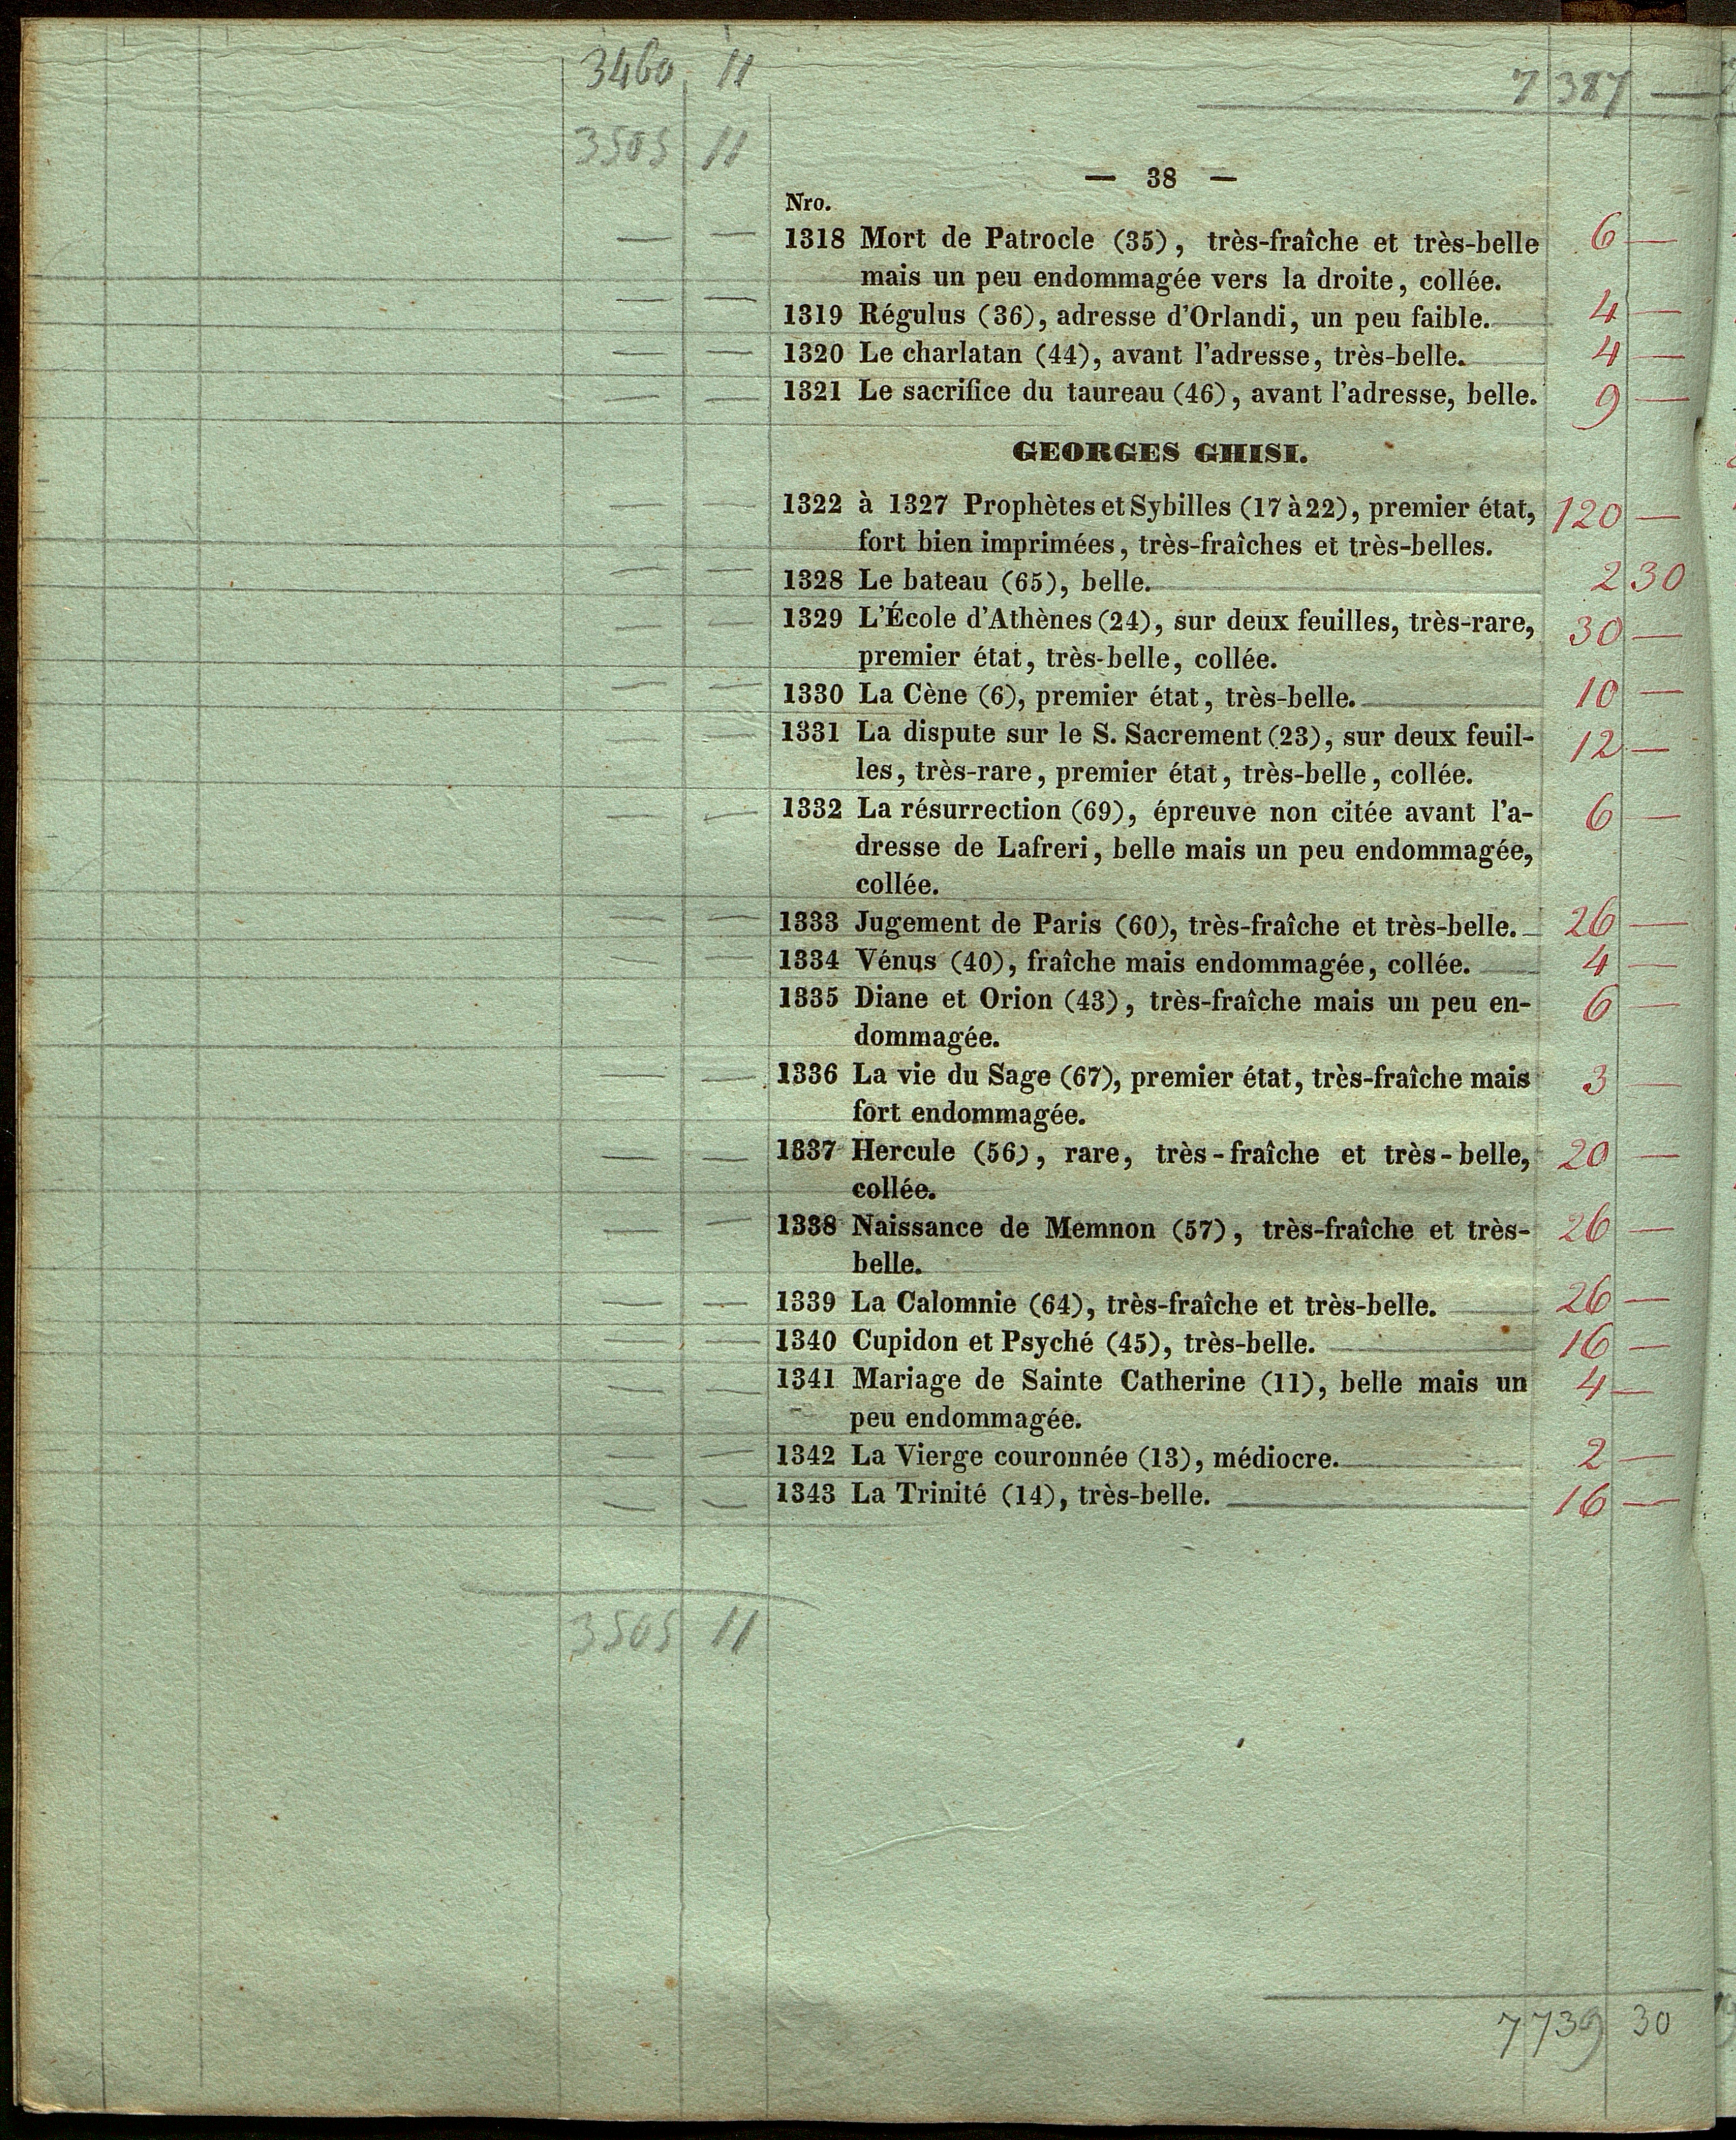 3460 11
7 387 —
3505 11
— 38 —
Nro.
— — 1318 Mort de Patrocle (35), très-fraîche et très-belle 6 —
mais un peu endommagée vers la droite, collée.
— — 1319 Régulus (36), adresse d'Orlandi, un peu faible. 4 —
— — 1320 Le charlatan (44), avant l'adresse, très-belle. 4 —
— — 1321 Le sacrifice du taureau (46), avant l'adresse, belle. 9 —
GEORGES GHISI.
— — 1322 à 1327 Prophètes et Sybilles (17 à 22), premier état, 120 —
fort bien imprimées, très-fraîches et très-belles.
— — 1328 Le bateau (65), belle. 2 30
— — 1329 L'École d'Athènes (24), sur deux feuilles, très-rare, 30 —
premier état, très-belle, collée.
— — 1330 La Cène (6), premier état, très-belle. 10 —
— — 1331 La dispute sur le S. Sacrement (23), sur deux feuil- 12 —
les, très-rare, premier état, très-belle, collée.
— — 1332 La résurrection (69), épreuve non citée avant l'a- 6 —
dresse de Lafreri, belle mais un peu endommagée,
collée.
— — 1333 Jugement de Paris (60), très-fraîche et très-belle. 26 —
— — 1334 Vénus (40), fraîche mais endommagée, collée. 4 —
— — 1335 Diane et Orion (43), très-fraîche mais un peu en- 6 —
dommagée.
— — 1336 La vie du Sage (67), premier état, très-fraîche mais 3 —
fort endommagée.
— — 1337 Hercule (56), rare, très-fraîche et très-belle, 20 —
collée.
— — 1338 Naissance de Memnon (57), très-fraîche et très- 26 —
belle.
— — 1339 La Calomnie (64), très-fraîche et très-belle. 26 —
— — 1340 Cupidon et Psyché (45), très-belle. 16 —
— — 1341 Mariage de Sainte Catherine (11), belle mais un 4 —
peu endommagée.
— — 1342 La Vierge couronnée (13), médiocre. 2 —
— — 1343 La Trinité (14), très-belle. 16 —
3505 11
7 739 30